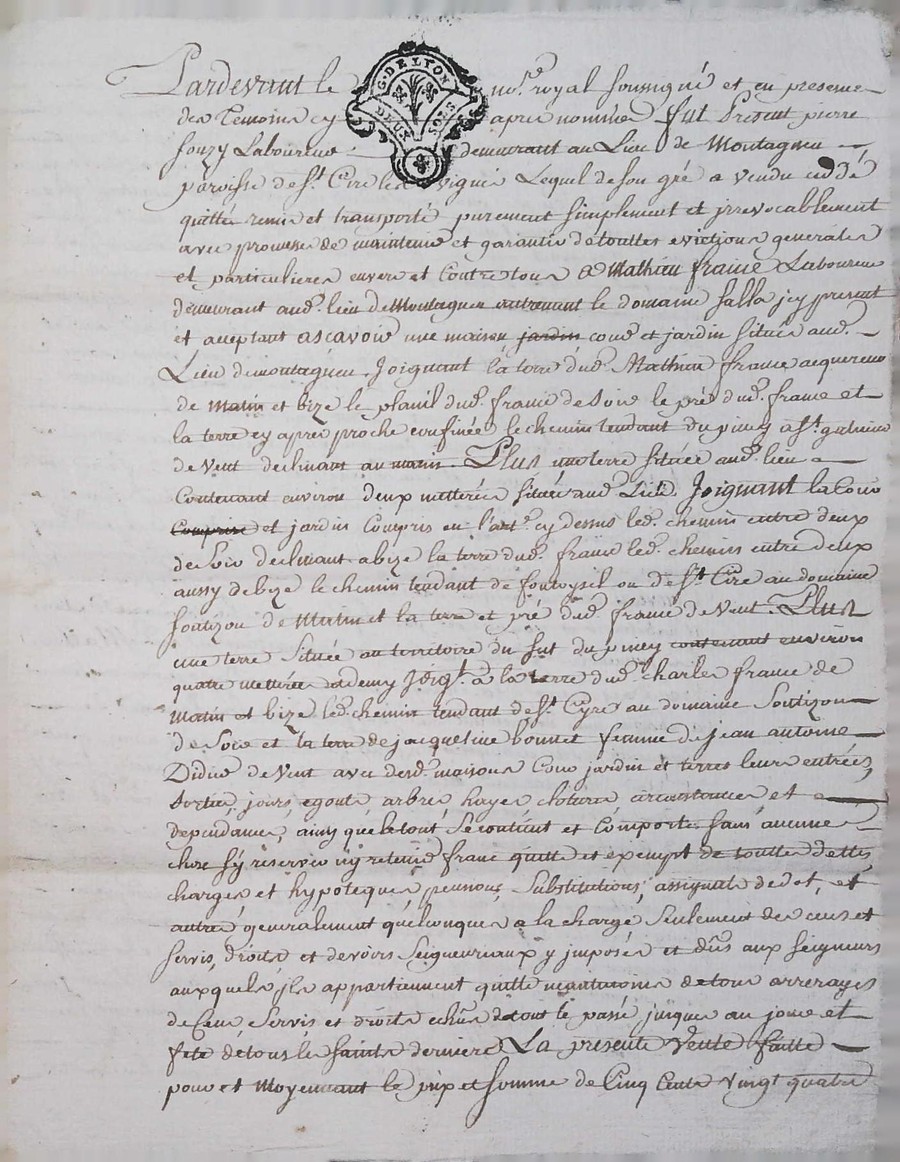 Pardevant le no.re royal soussigné et en presence
G. DE LYON
DEUX SOLS
des Temoins cy apres nommés fut Present pierre
fouzy Laboureur demeurant au Lieu de Montagneu
paroisse de st. Cire les vignes Lequel de son gré a vendu ceddé
quitté remis et transporté purement simplement et jrrevocablement
avec promesse de maintenir et garantir de touttes evictions generales
et particulieres envers et Contre tous a Mathieu france Laboureur
demeurant aud. lieu de Montagneu le domaine salla jcy present
et acceptant ascavoir une maison jardin cour et jardin situés aud.
Lieu de montagneu Joignant la terre dud. Mathieu france acquereur
de Matin et bize le plasil dud. france de Soir le pré dud. france et
la terre cy apres proche confinée le chemin tendant du piney a st. galmier
de Vent declinant au matin. Plus une terre située aud. lieu
Contenant environ deux metterées situées aud. Lieu. Joignant la Cour
Comprise et jardin Compris en l'art. cy dessus led. chemin entre deux
de Soir declinant a bize la terre dud. france led. chemin entre deux
aussy de bize le chemin tendant de ou de st. Cire au domaine
Soutizon de Matin et la terre et pré dud. france de Vent. Plus
une terre Située au territoire du piney contenant environ
quatre metterées a demy Joig.t a la terre dud. charles france de
Matin et bize led. chemin tendant de st. Cyre au domaine Soutizon
de Soir et la terre de jacqueline bonnet femme de jean antoine
Didier de Vent avec desd. maisons Cour jardin et terres leurs entrées,
Sorties, jours, egouts arbres hayes, clotures, circonstances et
dependances, ainsy que le tout Se contient et Comporte sans aucune
chose s'y reserver ny retenir franc quitte et exempt de touttes dettes,
charges et hypoteques, pensions, Substitutions, assignats de dot, et
autres generalement quelconques a la charge Seulement des cens et
servis, droits et devoirs Seigneuriaux y imposés et dûs aux seigneurs
auxquels jls appartiennent quitte neantmoins de tous arrerages
de Cens Servis et droits echus de tout le passé jusques au jour et
fete de tous les saints derniere La presente Vente faitte
pour et Moyennant le prix et somme de Cinq Cents vingt quatre